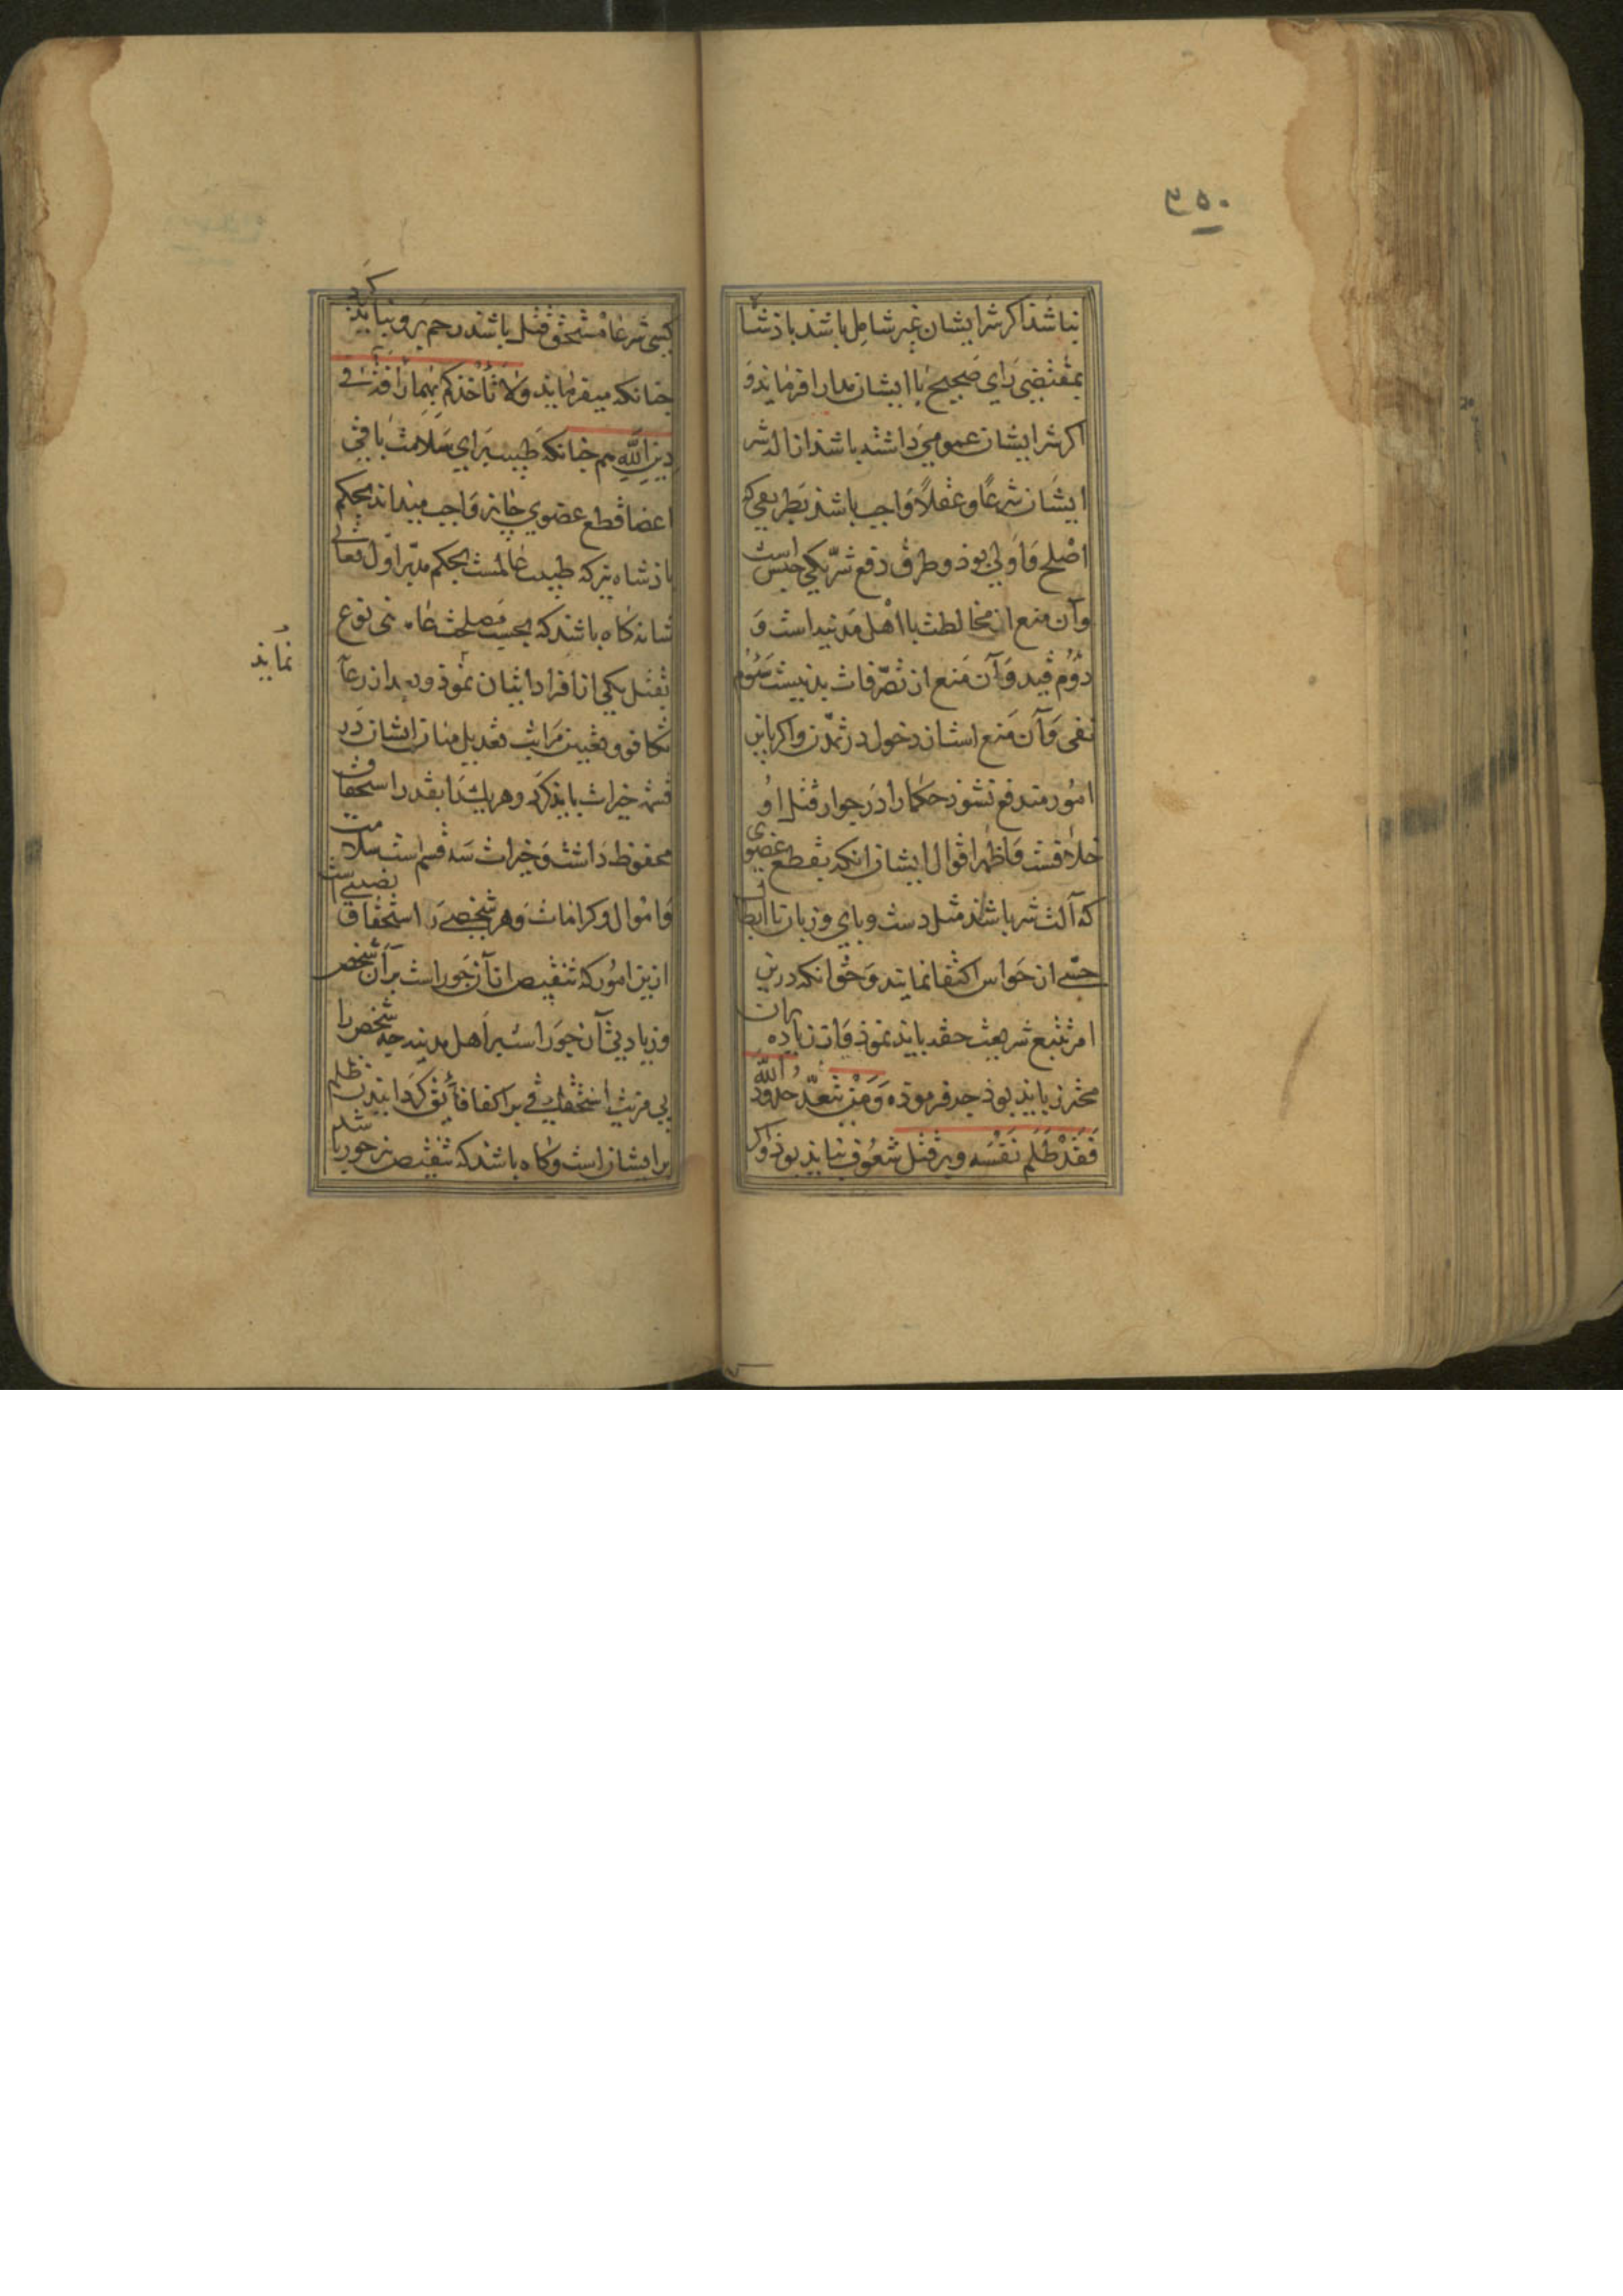 ٣٥٠
نباشذ اكر شر ایشان غیر شامل باشذ باذشا
بمقتضی رای صحیح با ایشان مدارا فرماید و
اكر شر ایشان عمومی داشته باشذ ازاله شر
ایشان شرعًا و عقلاً واجب باشذ بطریقی كه
اصلح و اولی بوذ و طرق دفع شرّ یكی حبس است
وآن منع از مخالطت با اهل مدنیه است و
دوُم قید وآن منع از تصرّفات بدنیست سَوُم
نفی وآن منع است از دخول در تمدّن و اكر باین
امور مندفع نشوذ حكما را در جواز قتل او
خلافست و اظهر اقوال ایشان انكه بقطع عضوی
كه آلت شر باشذ مثل دست و بای و زبان تا ابطال
حسّی از حواس اكتفا نمایند و حق انكه درین
امر تتبع شریعت حقه بایذ نموذ و از زیاده بران
محترز بایذ بوذ جه فرموذه وَمَنْ یَتَعَدَّ حُدُودَ اللهِ
فَقَدْ ظَلَمَ نَفْسَهُ و بر قتل شعوف نبایذ بوذ و اكر
كسی شرعا مستحق قتل باشذ رحم برو نبایذ كرد
جنانكه میفرماید وَلا تَأْخُذْكُمْ بِهِمَا رَأْفَةٌ فِی
دِینِ اللهِ هم جنانكه طبیب برای سلامت باقی
اعضا قطع عضوی جایز و واجب میداند بحكم
باذشاه نیز كه طبیب عالمست بحكم مدبّر اول تعالی
شانه كاه باشذ كه بحسب مصلحت عامه بنی نوع
بقتل یكی از افراد ایشان نموذ و بعد از رعایت
نمایذ
تكافو و تعیین مراتب تعدیل میان ایشان در
قسمه خیرات بایذ كرد و هر یك را بقدر استحقاق
محفوظ داشت و خیرات سه قسم است سلامت
و اموال و كرامات و هر شخصی را استحقاق نصیبی است
ازین امور كه تنقیص از آن جور است بر آن شخص
و زیادتی آن جور است بر اهل مدینه جه شخص را
بی مزیت استحقاقی بر اكفا فائق كردانیدن ظلم
بر ایشان است و كاه باشذ كه تنقیص نیز جور باشد